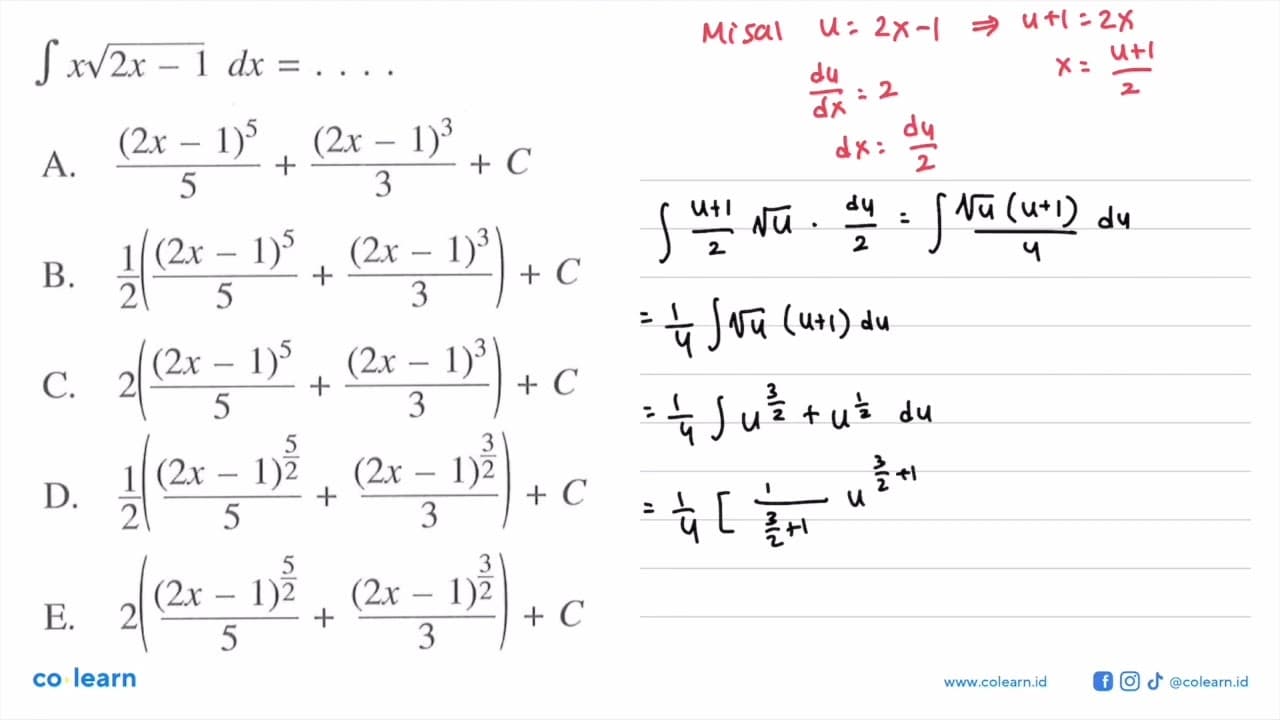 ∫ x√(2x − 1) dx = . . . .
A. (2x − 1)^5/5 + (2x − 1)^3/3 + C
B. 1/2((2x − 1)^5/5 + (2x − 1)^3/3) + C
C. 2((2x − 1)^5/5 + (2x − 1)^3/3) + C
D. 1/2((2x − 1)^(5/2)/5 + (2x − 1)^(3/2)/3) + C
E. 2((2x − 1)^(5/2)/5 + (2x − 1)^(3/2)/3) + C
Misal u = 2x-1 ⇒ u+1 = 2x
du/dx = 2
x = (u+1)/2
dx = du/2
∫ (u+1)/2 √u · du/2 = ∫ √u (u+1)/4 du
= 1/4 ∫ √u (u+1) du
= 1/4 ∫ u^(3/2) + u^(1/2) du
= 1/4 [ 1/(3/2+1) u^(3/2+1)
co learn
www.colearn.id
@colearn.id